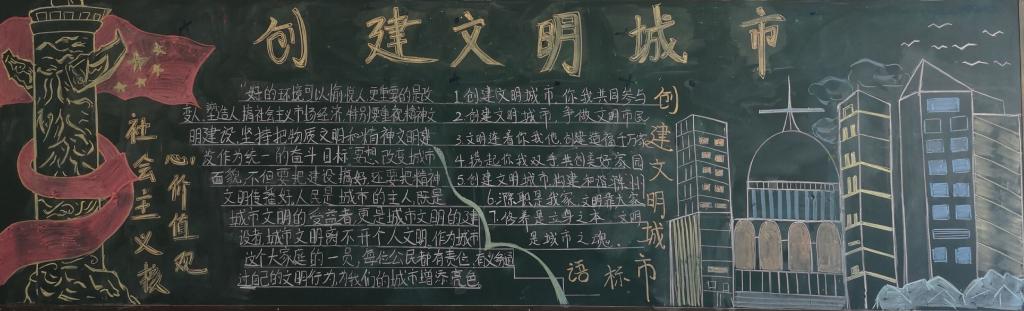 创建文明城市
社会主义核
心价值观
好的环境可以愉悦人更重要的是改
变人塑造人搞社会主义市场经济特别要重视精神文
明建设,坚持把物质文明和精神文明建
设作为统一的奋斗目标要想改变城市
面貌,不但要把建设搞好还要把精神
文明传播好,人民是城市的主人既是
城市文明的受益者更是城市文明的建
设者,城市文明离不开个人文明,作为城市
这个大家庭的一员,每位公民都有责任,有义务通
过自己的文明行为,为我们的城市增添亮色
1.创建文明城市,你我共同参与
2.创建文明城市,争做文明市民
3.文明连着你我他,创建造福千万家
4.携起你我双手共创美好家园
5.创建文明城市,构建和谐滁州
6.滁州是我家,文明靠大家
7.信春是立身之本,文明
是城市之魂。
创建文明城市
语标